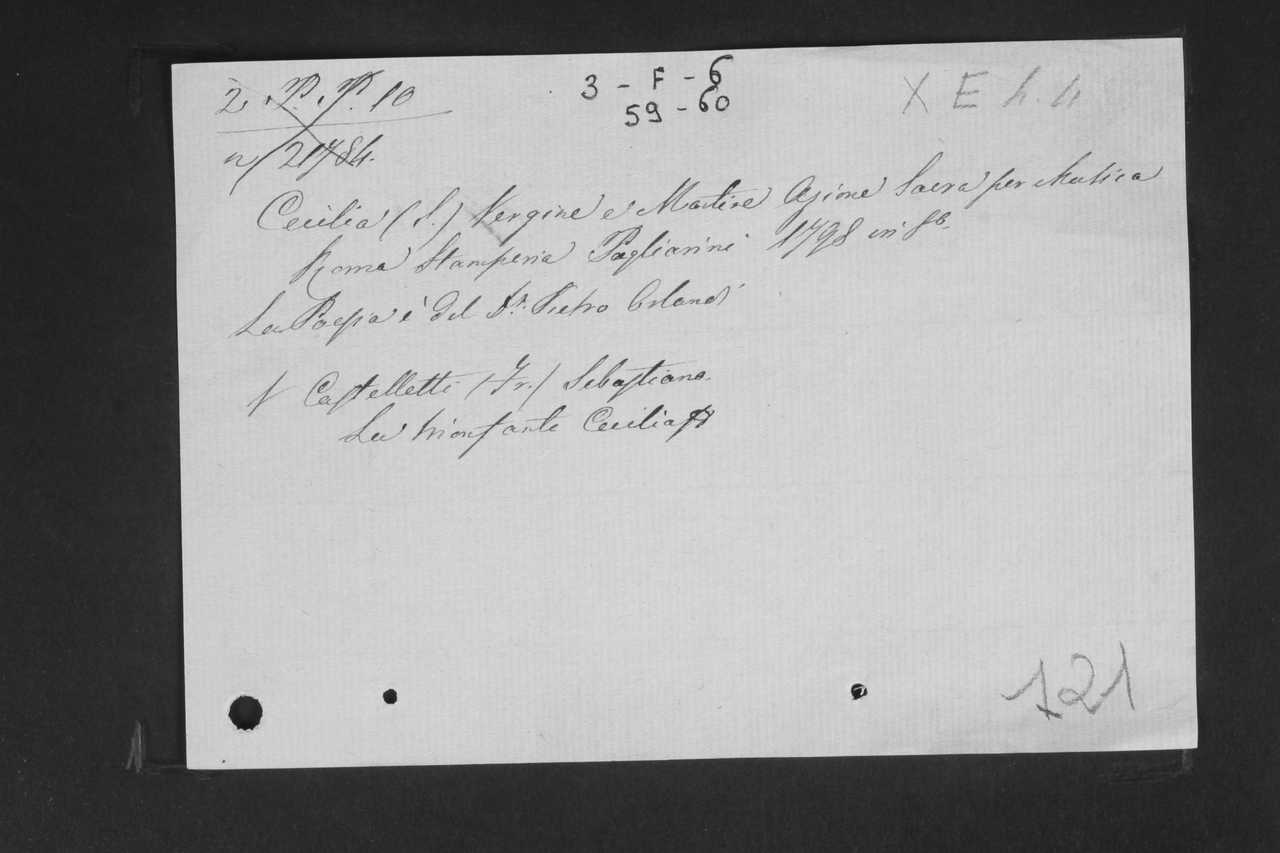 2. P. P. 10
n/ 21784.
3 - F - 6
59 - 60
X E h. 4
Cecilia (S.) Vergine e Martire Azione Sacra per Musica
Roma Stamperia Pagliarini 1798 in 8o.
La Poesia è del Sr. Pietro Orlandi
/ Castelletti (Fr.) Sebastiano.
La trionfante Cecilia
121